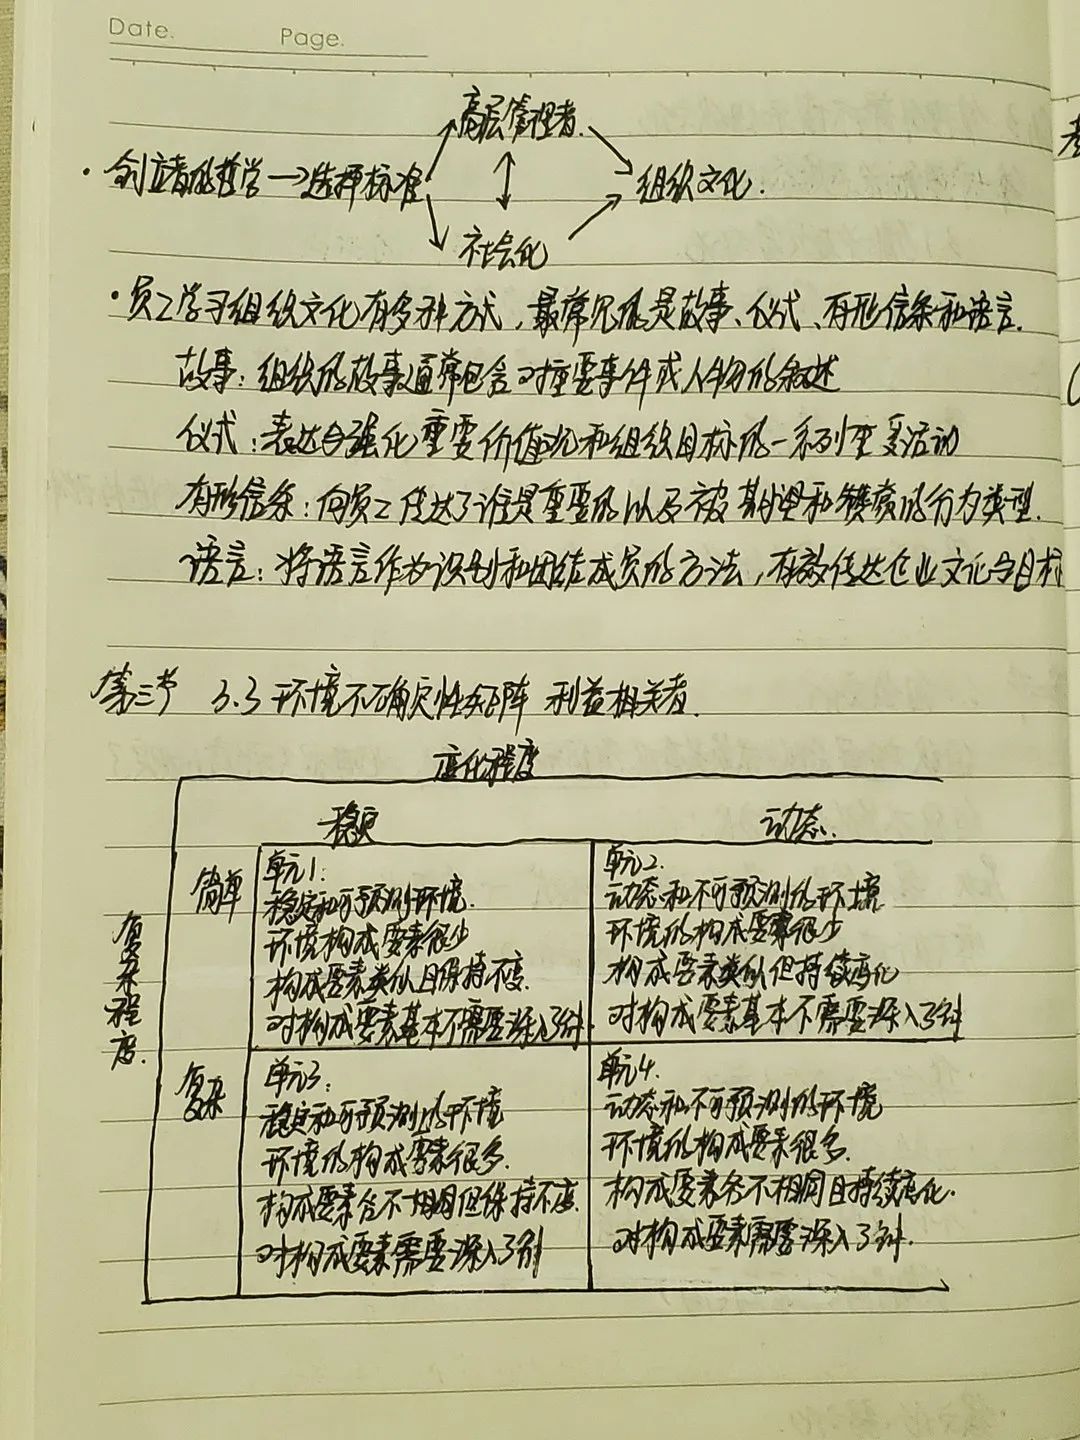 Date. Page.
高层管理者.
·创立者的哲学→选择标准
组织文化.
社会化
·员工学习组织文化有多种方式,最常见的是故事、仪式、有形信条和语言.
故事:组织的故事通常包含对重要事件或人物的叙述
仪式:表达与强化重要价值观和组织目标的一系列重复活动
有形信条:向员工传达了谁是重要的以及被期望和赞赏的行为类型.
语言:将语言作为识别和团结成员的方法,有效传达企业文化与目标
第三节 3.3环境不确定性矩阵 利益相关者.
变化程度
稳定 动态.
复杂程度.
简单
单元1:
稳定和可预测环境.
环境构成要素很少
构成要素类似且保持不变.
对构成要素基本不需要深入了解.
单元2.
动态和不可预测的环境
环境的构成要素很少
构成要素类似但持续变化
对构成要素基本不需要深入了解
复杂
单元3:
稳定和可预测的环境
环境的构成要素很多.
构成要素各不相同但保持不变.
对构成要素需要深入了解
单元4.
动态和不可预测的环境
环境的构成要素很多.
构成要素各不相同且持续变化.
对构成要素需要深入了解.